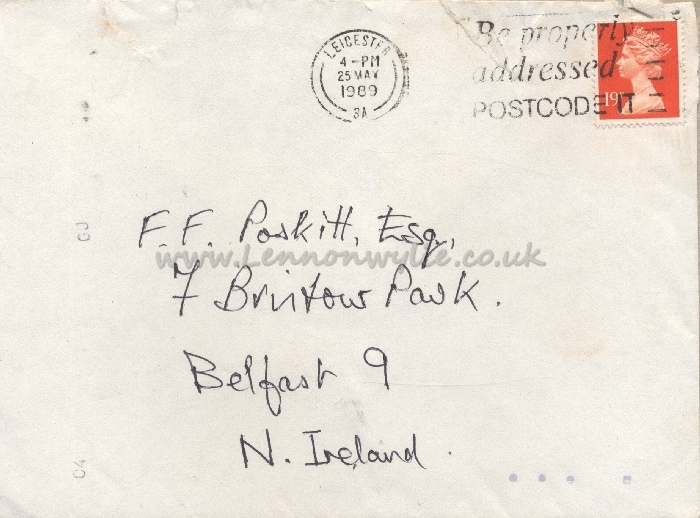 LEICESTER
4-PM
25 MAY
1989
3A
Be properly
addressed
POSTCODE IT
19P
F.F. Poskitt, Esq.,
www.Lennonwylie.co.uk
7 Bristow Park.
Belfast 9
N. Ireland.